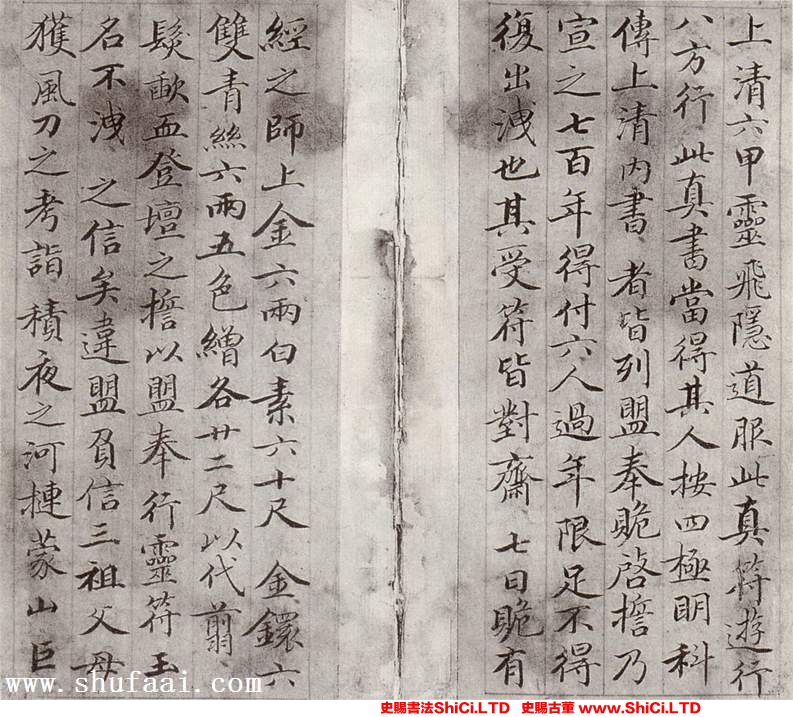 上清六甲靈飛隱道服此真符遊行
八方行此真書當得其人按四極明科
傳上清內書者皆列盟奉贍啓擔乃
宣之七百年得付六人過年限足不得
復出洩也其受符皆對齋七日贍有
經之師上金六兩白素六十尺金鐶六
雙青絲六兩五色繒各廿二尺以代翦
髮歃血登壇之擔以盟奉行靈符玉
名不洩之信矣違盟負信三祖父母
獲風刀之考詣積夜之河捷蒙山巨
www.shufaai.com
史賜書法ShiCi.LTD 史賜古董 www.ShiCi.LTD